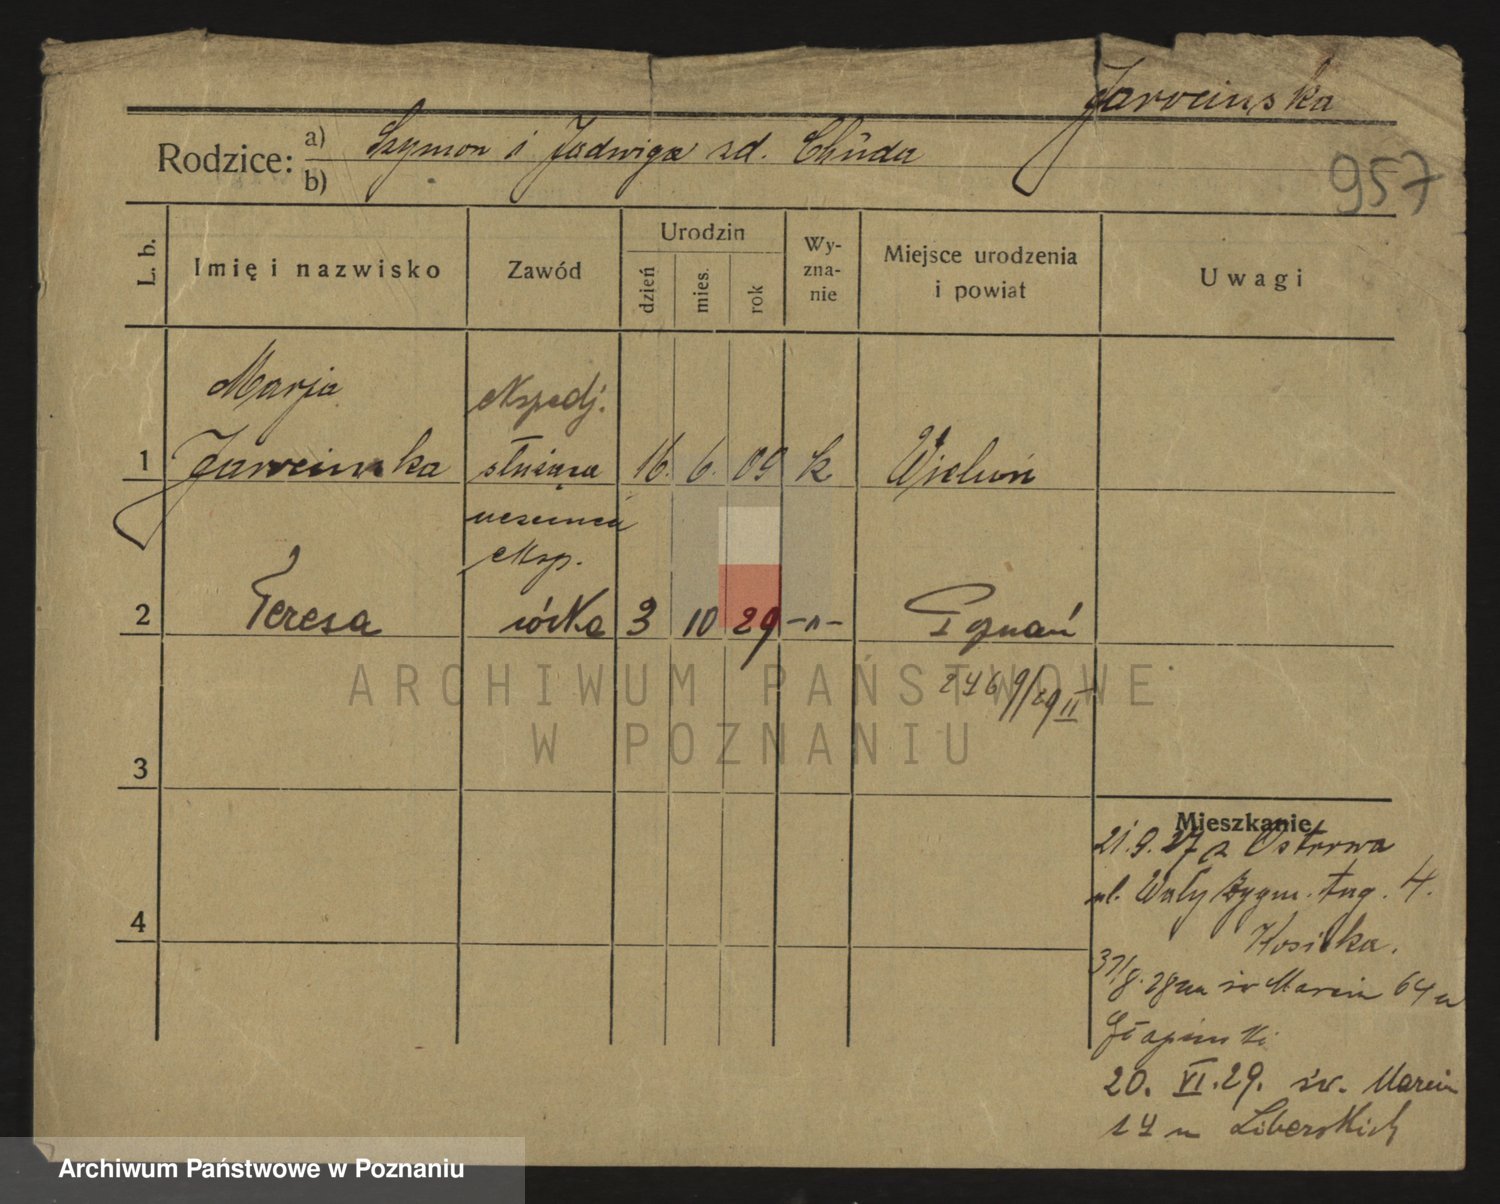 Jarocinska
Rodzice: a) Szymon i Jadwiga zd. Chuda
b)
957
L. b.
Imię i nazwisko
Zawód
Urodzin
dzień
mies.
rok
Wy-
zna-
nie
Miejsce urodzenia
i powiat
Uwagi
Marja
ekspedj.
1 Jarocinska służąca 16. 6. 09 k Wieluń
uczennica
eksp.
2 Teresa córka 3 10 29 -"- Poznań
2469/29 II
ARCHIWUM PAŃSTWOWE
W POZNANIU
3
4
Mieszkanie
21.9.27 z Ostrowa
ul. Wały Zygm. Aug. 4.
31/8. 28 św Marcin 64 u
20. VI. 29. św. Marcin
14 u Liberskich
Archiwum Państwowe w Poznaniu